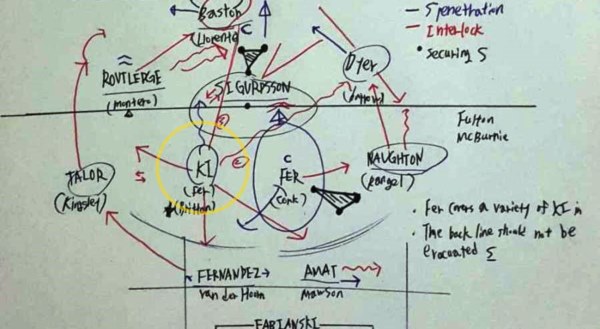 Baston
(Llorente)
C
5 penetration
Interlock
securing S
Dyer
ROUTLEDGE
(montero)
SIGURDSSON
Fulton
McBurnie
KI
(Fer)
Britton
C
FER
(Cork)
NAUGHTON
(Rangel)
TALOR
(Kingsley)
• Fer covers a variety of KI in
• The back line should not be
evacuated S
FERNANDEZ
van der Hoorn
AMAT
Mawson
FABIANSKI